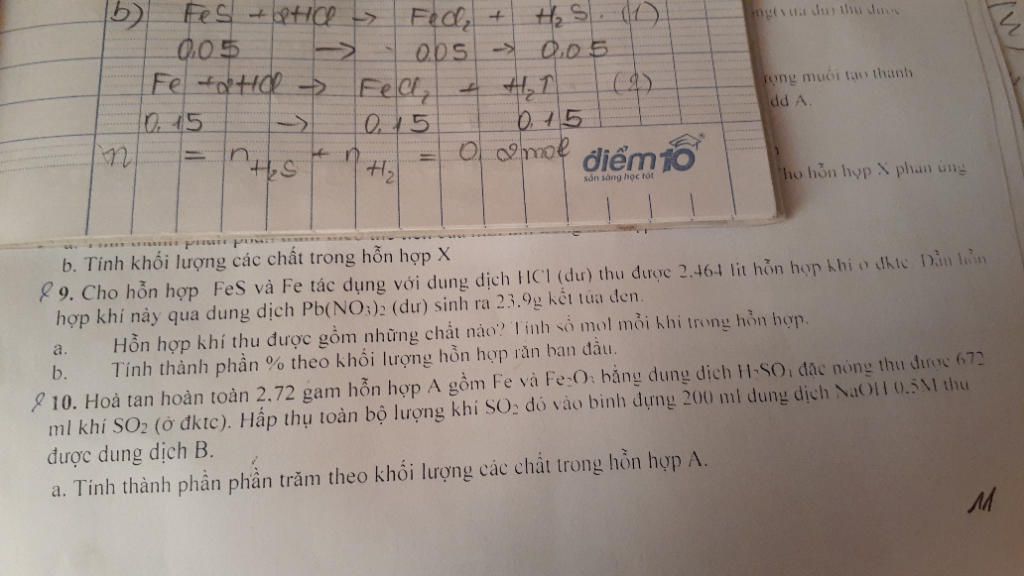 b) FeS + 2HCl → FeCl₂ + H₂S. (1)
0,05 → 0,05 → 0,05
Fe + 2HCl → FeCl₂ + H₂↑ (2)
0,15 → 0,15 0,15
n = nH₂S + nH₂ = 0,2mol
điểm10
sẵn sàng học tốt
thu được
muối tạo thành
dd A.
hỗn hợp X phản ứng
b. Tính khối lượng các chất trong hỗn hợp X
9. Cho hỗn hợp FeS và Fe tác dụng với dung dịch HCl (dư) thu được 2.464 lit hỗn hợp khí ở đktc. Dẫn hỗn
hợp khí này qua dung dịch Pb(NO₃)₂ (dư) sinh ra 23,9g kết tủa đen.
a. Hỗn hợp khí thu được gồm những chất nào? Tính số mol mỗi khí trong hỗn hợp.
b. Tính thành phần % theo khối lượng hỗn hợp rắn ban đầu.
10. Hoà tan hoàn toàn 2.72 gam hỗn hợp A gồm Fe và Fe₂O₃ bằng dung dịch H₂SO₄ đặc nóng thu được 672
ml khí SO₂ (ở đktc). Hấp thụ toàn bộ lượng khí SO₂ đó vào bình đựng 200 ml dung dịch NaOH 0.5M thu
được dung dịch B.
a. Tính thành phần phần trăm theo khối lượng các chất trong hỗn hợp A.
M